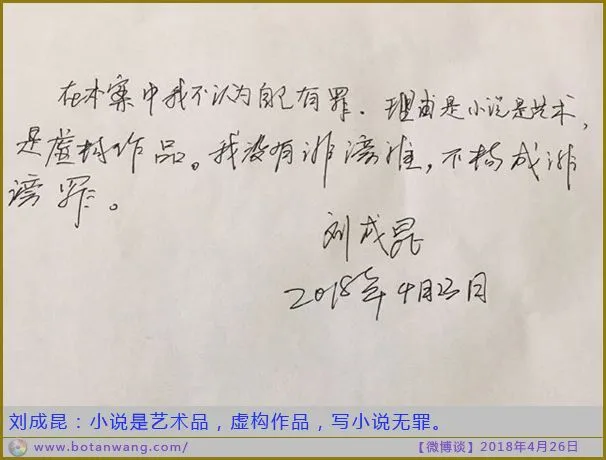 在本案中我不认为自己有罪.理由是小说是艺术,
是虚构作品。我没有诽谤谁,不构成诽
谤罪。
刘成昆
2018年4月23日
刘成昆：小说是艺术品，虚构作品，写小说无罪。
www.botanwang.com/
【微博谈】2018年4月26日